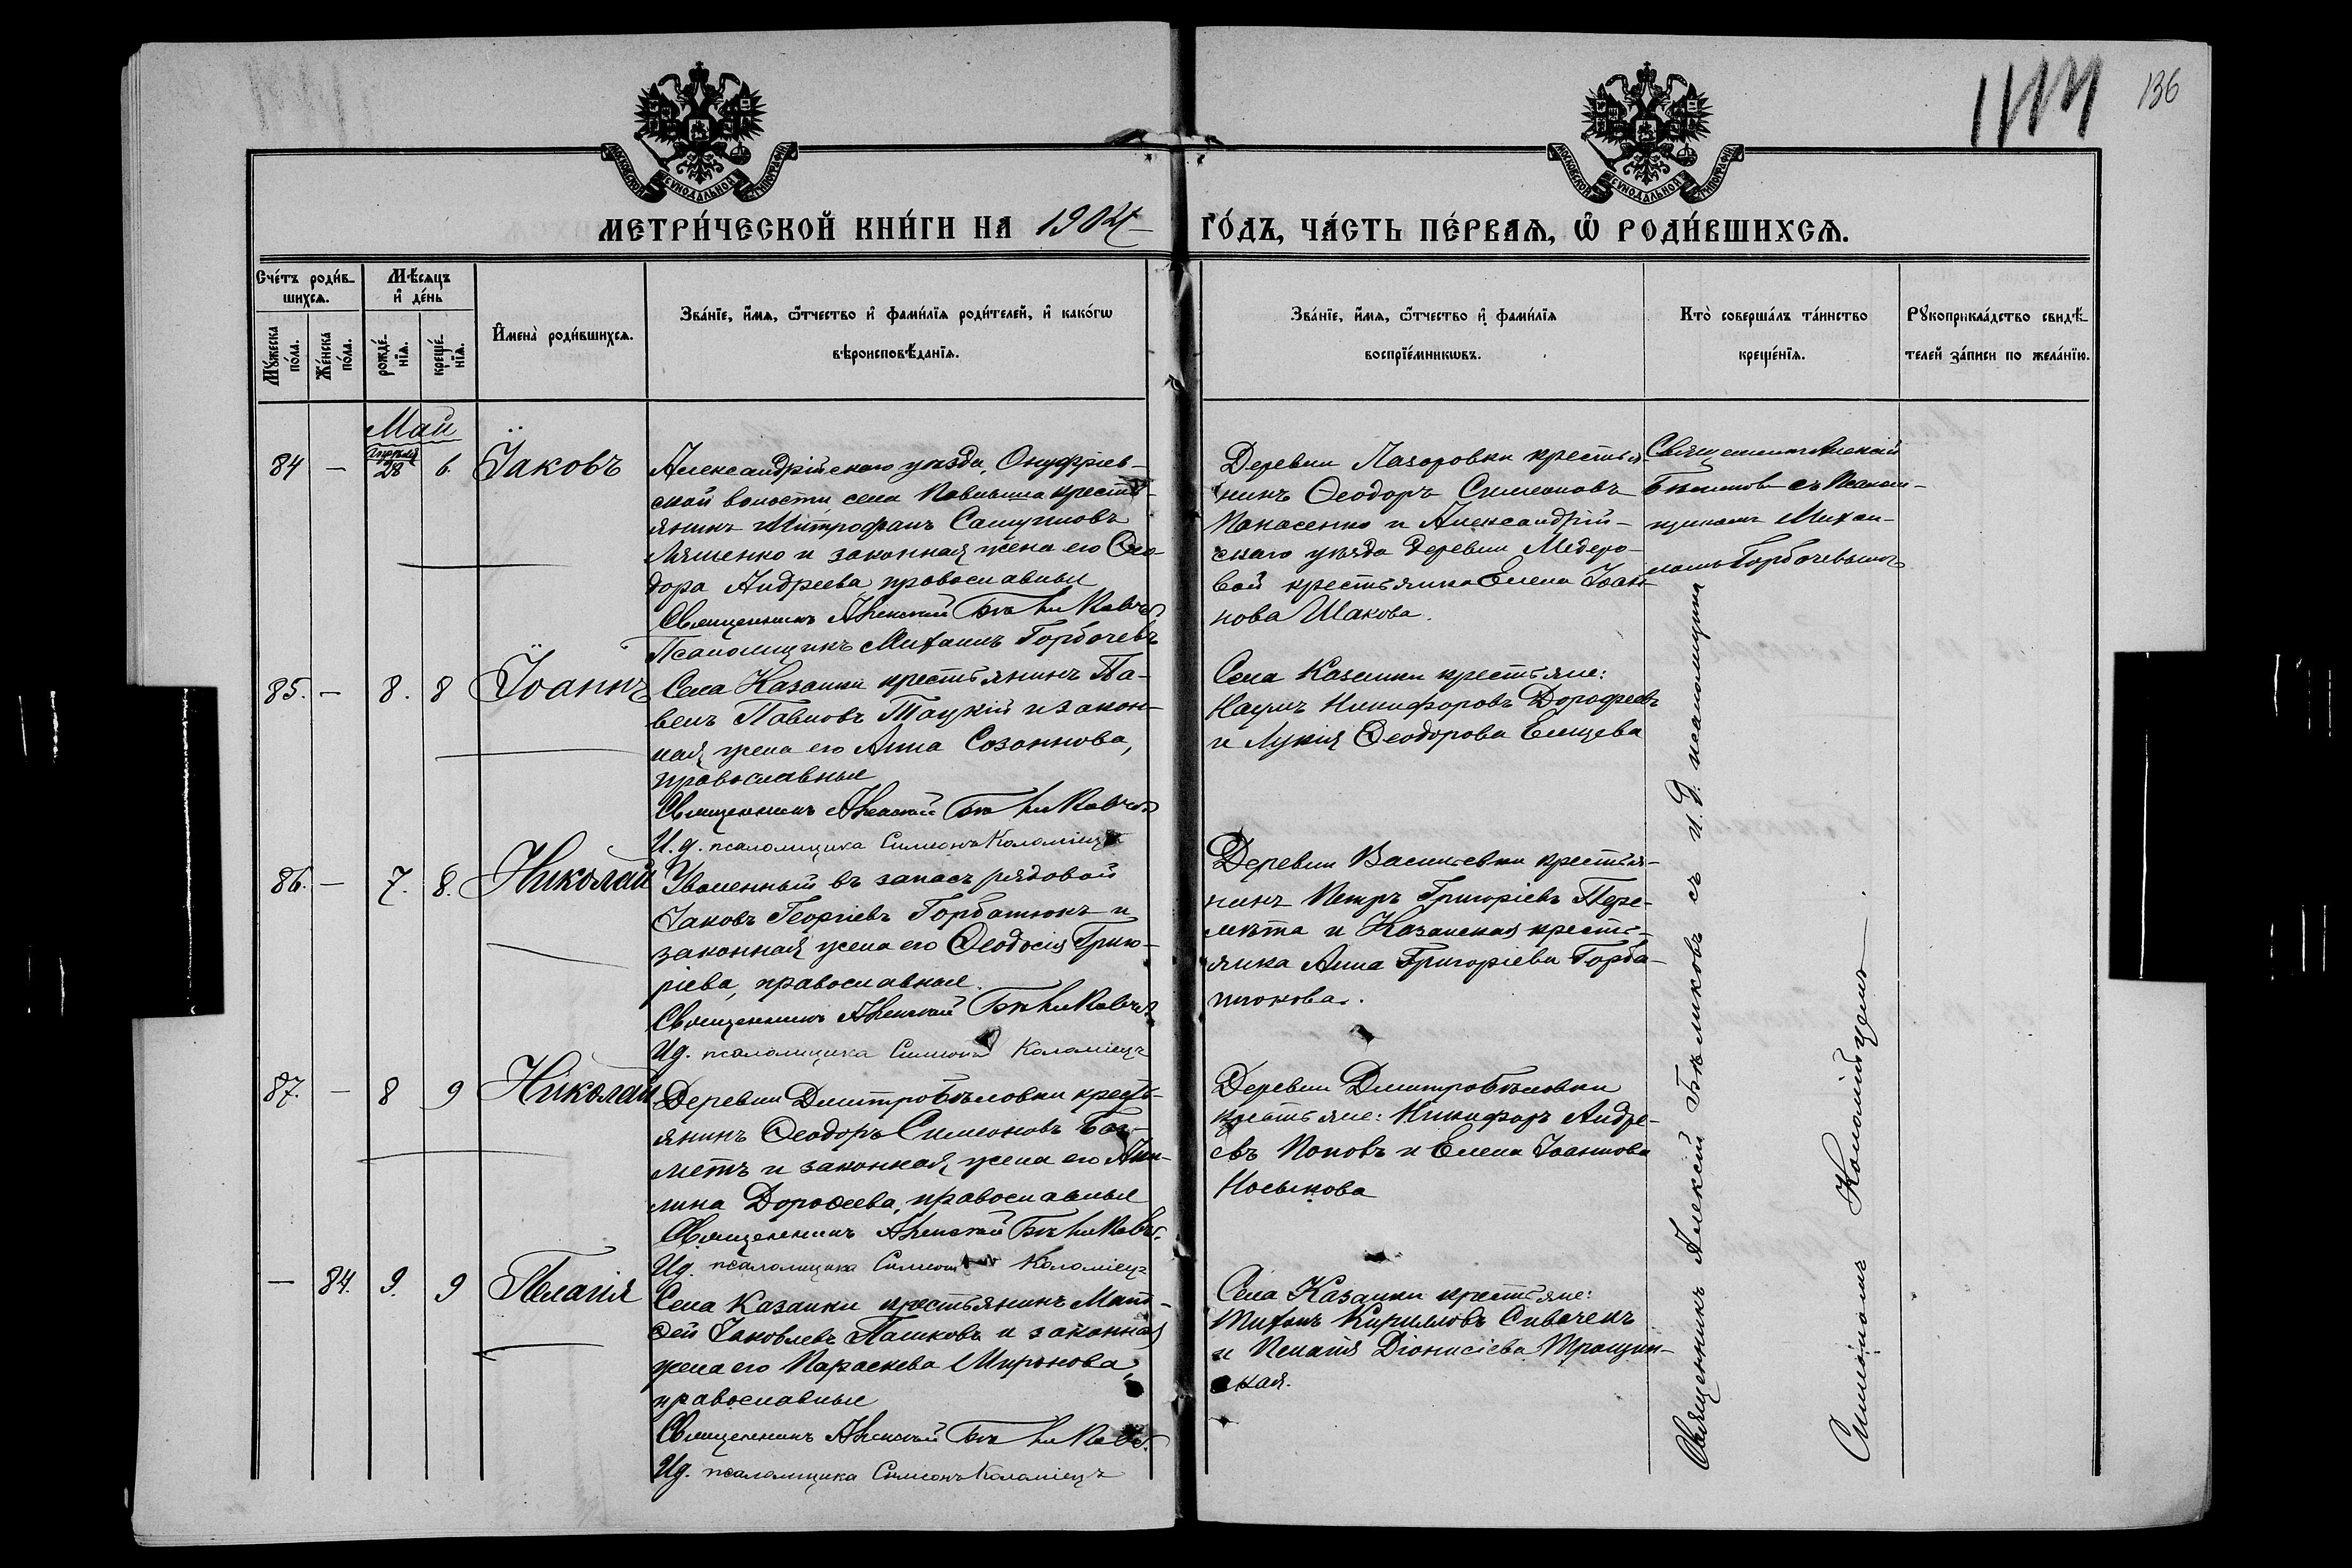 136
МОСКОВСКОЙ СѴНОДАЛЬНОЙ ТИПОГРАФІИ
МОСКОВСКОЙ СѴНОДАЛЬНОЙ ТИПОГРАФІИ
МЕТРИ́ЧЕСКОЙ КНИ́ГИ НА 1904 ГО́ДЪ, ЧА́СТЬ ПЕ́РВАѦ, Ѡ҆ РОДИ́ВШИХСѦ.
Сче́тъ роди́вшихсѧ.
Мꙋ́жеска по́ла.
Же́нска по́ла.
Мѣ́сѧцъ и҆ де́нь
рожде́нїѧ.
креще́нїѧ.
И҆мена̀ роди́вшихсѧ.
Зва́нїе, и҆́мѧ, ѻ҆́тчество и҆ фами́лїѧ роди́телей, и҆ како́гѡ
вѣроисповѣ́данїѧ.
Зва́нїе, и҆́мѧ, ѻ҆́тчество и҆ фами́лїѧ
воспрїе́мникѡвъ.
Кто̀ соверша́лъ та́инство
креще́нїѧ.
Рꙋкоприкла́дство свидѣ́-
телей за́писи по жела́нїю.
Май
84 — Апреля 28 6. Іаковъ
Александрійскаго уѣзда, Онуфріев-
ской волости, села Павлыша кресть-
янинъ Митрофанъ Самуиловъ
Ляшенко и законная жена его Ѳео-
дора Андреева, православные
Священникъ Алексій Бѣликовъ.
Псаломщикъ Михаилъ Горбачевъ
Деревни Лазаровки крестья-
нинъ Ѳеодоръ Симеоновъ
Панасенко и Александрій-
скаго уѣзда деревни Медеро-
вой крестьянка Елена Іоан-
нова Шакова.
Священникъ Алексій
Бѣликовъ съ Псалом-
щикомъ Михаи-
ломъ Горбачевымъ
85. — 8. 8 Іоаннъ
Села Казанки крестьянинъ Па-
велъ Павловъ Тацкій и закон-
ная жена его Анна Созонтова,
православные
Священникъ Алексій Бѣликовъ
И. д. псаломщика Симеонъ Коломіецъ
Села Казанки крестьяне:
Наумъ Никифоровъ Дорофеевъ
и Лукія Ѳеодорова Елищева
86. — 7. 8. Николай
Уволенный въ запасъ рядовой
Іаковъ Георгіевъ Горбатюкъ и
законная жена его Ѳеодосія Григо-
ріева, православные.
Священникъ Алексій Бѣликовъ
И.д. псаломщика Симеонъ Коломіецъ
Деревни Васильевки крестья-
нинъ Петръ Григоріевъ Пере-
мѣта и Казанская кресть-
янка Анна Григоріева Горба-
тюкова.
87. — 8 9 Николай
Деревни Дмитробѣловки кресть-
янинъ Ѳеодоръ Симеоновъ
и законная жена его
Дороѳеева, православные
Священникъ Алексій Бѣликовъ.
И.д. псаломщика Симеонъ Коломіецъ
Деревни Дмитробѣловки
крестьяне: Никифоръ Андре-
евъ Поповъ и Елена Іоаннова
Носикова
— 84. 9. 9 Пелагія
Села Казанки крестьянинъ Мат-
ѳей Іаковлевъ Пашковъ и законная
жена его Параскева Миронова,
православные
Священникъ Алексій Бѣликовъ.
И.д. псаломщика Симеонъ Коломіецъ
Села Казанки крестьяне:
Тихонъ Кирилловъ Сивачекъ
и Пелагія Діонисіева Трощин-
ская.
Священникъ Алексій Бѣликовъ съ и. д. псаломщика
Симеономъ Коломійцемъ.